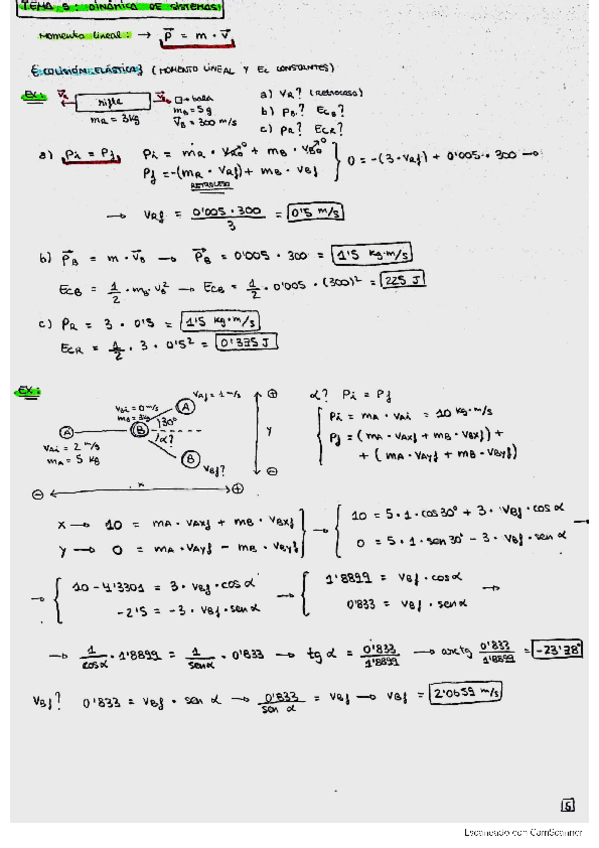 TEMA 5: DINÁMICA DE SISTEMAS
Momento lineal: → p⃗ = m · v⃗
{ COLISIÓN ELÁSTICA } (MOMENTO LINEAL Y EC CONSTANTES)
EX:
V⃗R
rifle
mR = 3kg
→ bala
mB = 5g
V⃗B = 300 m/s
a) VR? (Retroceso)
b) PB? ECB?
c) PR? ECR?
a) Pi = Pf
Pi = mR · VRo + mB · VBo
Pf = -(mR · VRf) + mB · VBf
RETROCESO
0 = -(3 · VRf) + 0'005 · 300 →
→ VRf = 0'005 · 300 / 3 = 0'5 m/s
b) P⃗B = m · V⃗B → P⃗B = 0'005 · 300 = 1'5 kg·m/s
ECB = 1/2 · mB · VB² → ECB = 1/2 · 0'005 · (300)² = 225 J
c) PR = 3 · 0'5 = 1'5 kg·m/s
ECR = 1/2 · 3 · 0'5² = 0'375 J
EX:
VAf = 1 m/s
VBi = 0 m/s
mB = 3kg
A
B
A
B
30°
α?
VAi = 2 m/s
mA = 5 kg
VBf?
x
y
⊕
⊖
⊖
⊕
α? Pi = Pf
Pi = mA · VAi = 10 kg·m/s
Pf = (mA · VAxf + mB · VBxf) +
+ (mA · VAyf + mB · VByf)
x → 10 = mA · VAxf + mB · VBxf
y → 0 = mA · VAyf - mB · VByf
→ 10 = 5 · 1 · cos30° + 3 · VBf · cos α
0 = 5 · 1 · sen30° - 3 · VBf · sen α →
→ 10 - 4'3301 = 3 · VBf · cos α
-2'5 = -3 · VBf · sen α
→ 1'8899 = VBf · cos α
0'833 = VBf · sen α →
→ 1/cosα · 1'8899 = 1/senα · 0'833 → tg α = 0'833/1'8899 → arctg 0'833/1'8899 = -23'78°
VBf? 0'833 = VBf · sen α → 0'833/sen α = VBf → VBf = 2'0659 m/s
5
Escaneado con CamScanner